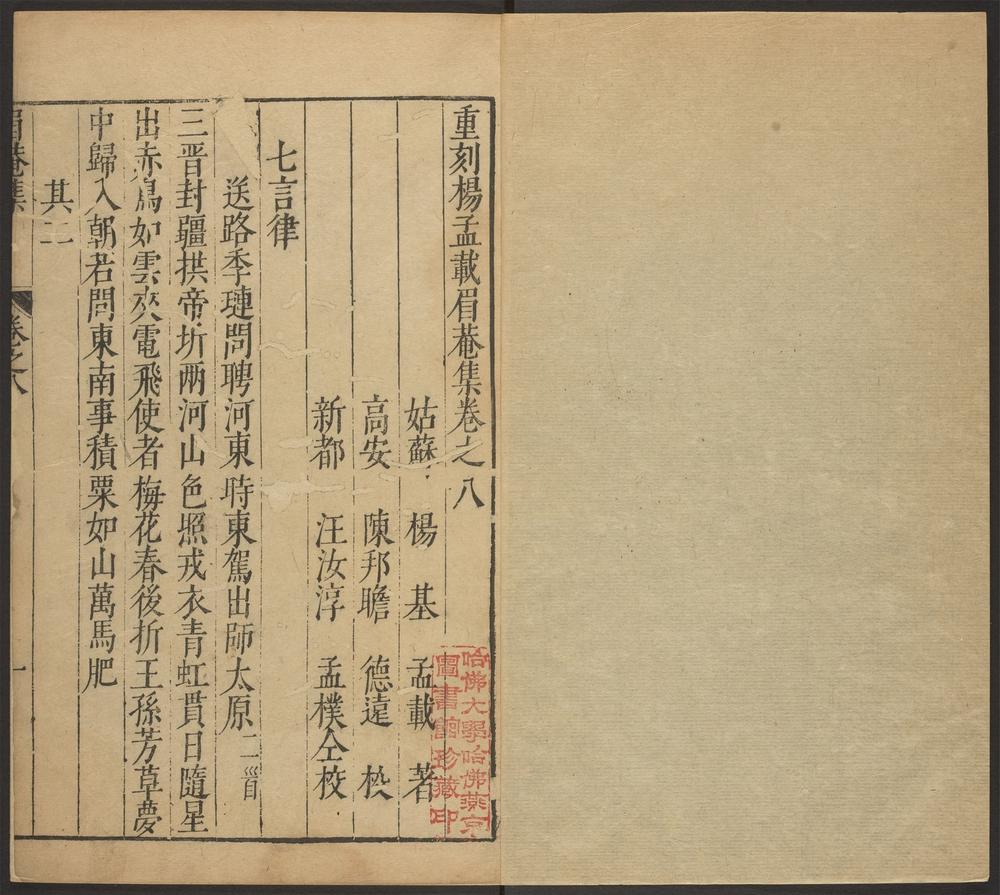 重刻楊孟載眉菴集卷之八
姑蘇 楊基 孟載 著
高安 陳邦瞻 德遠 校
新都 汪汝淳 孟樸仝校
七言律
送路季璉問聘河東時東駕出師太原二首
三晋封疆拱帝圻兩河山色照戎衣青虹貫日隨星
出赤鳥如雲夾電飛使者梅花春後折王孫芳草夢
中歸入朝若問東南事積粟如山萬馬肥
其二
眉菴集 卷之八 一
哈佛大學哈佛燕京
圖書館珍藏印